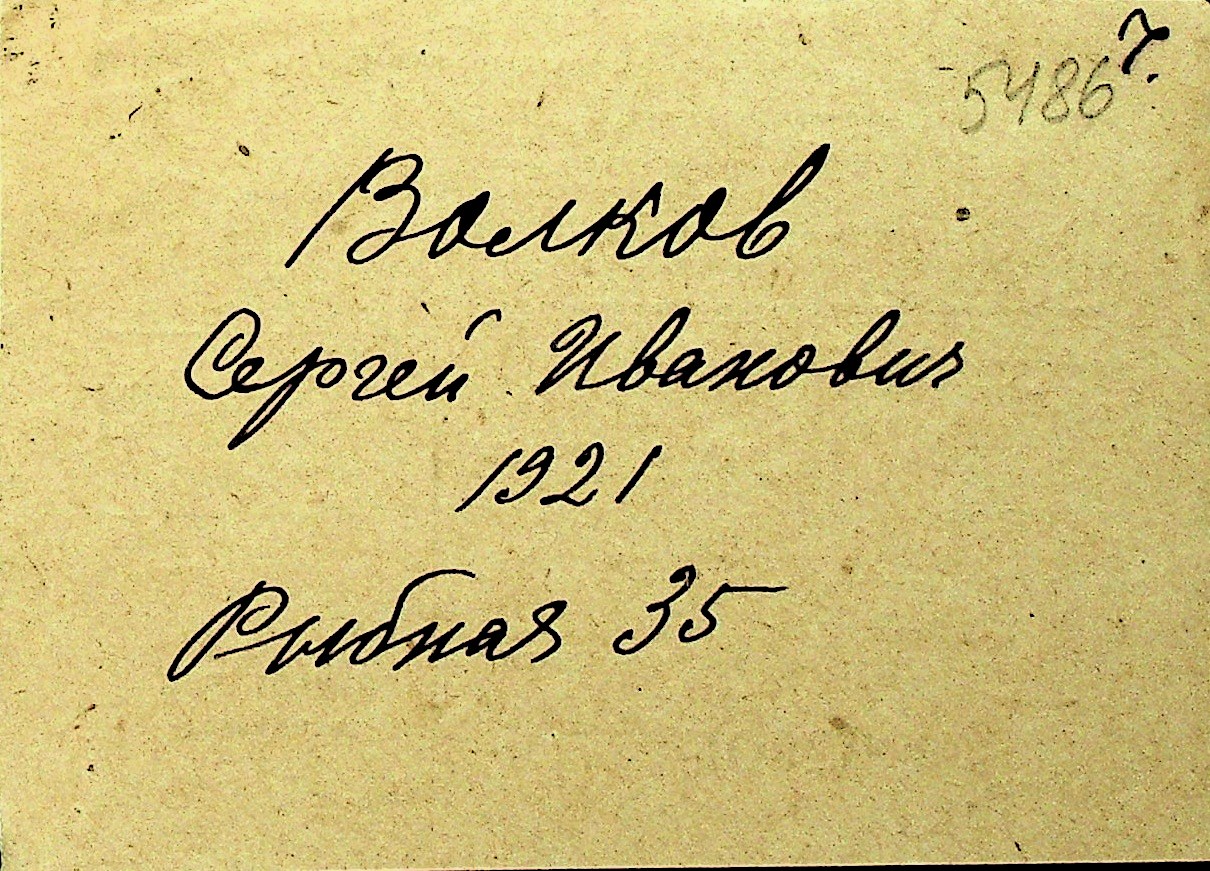 7.
5486
Волков
Сергей Иванович
1921
Рыбная 35